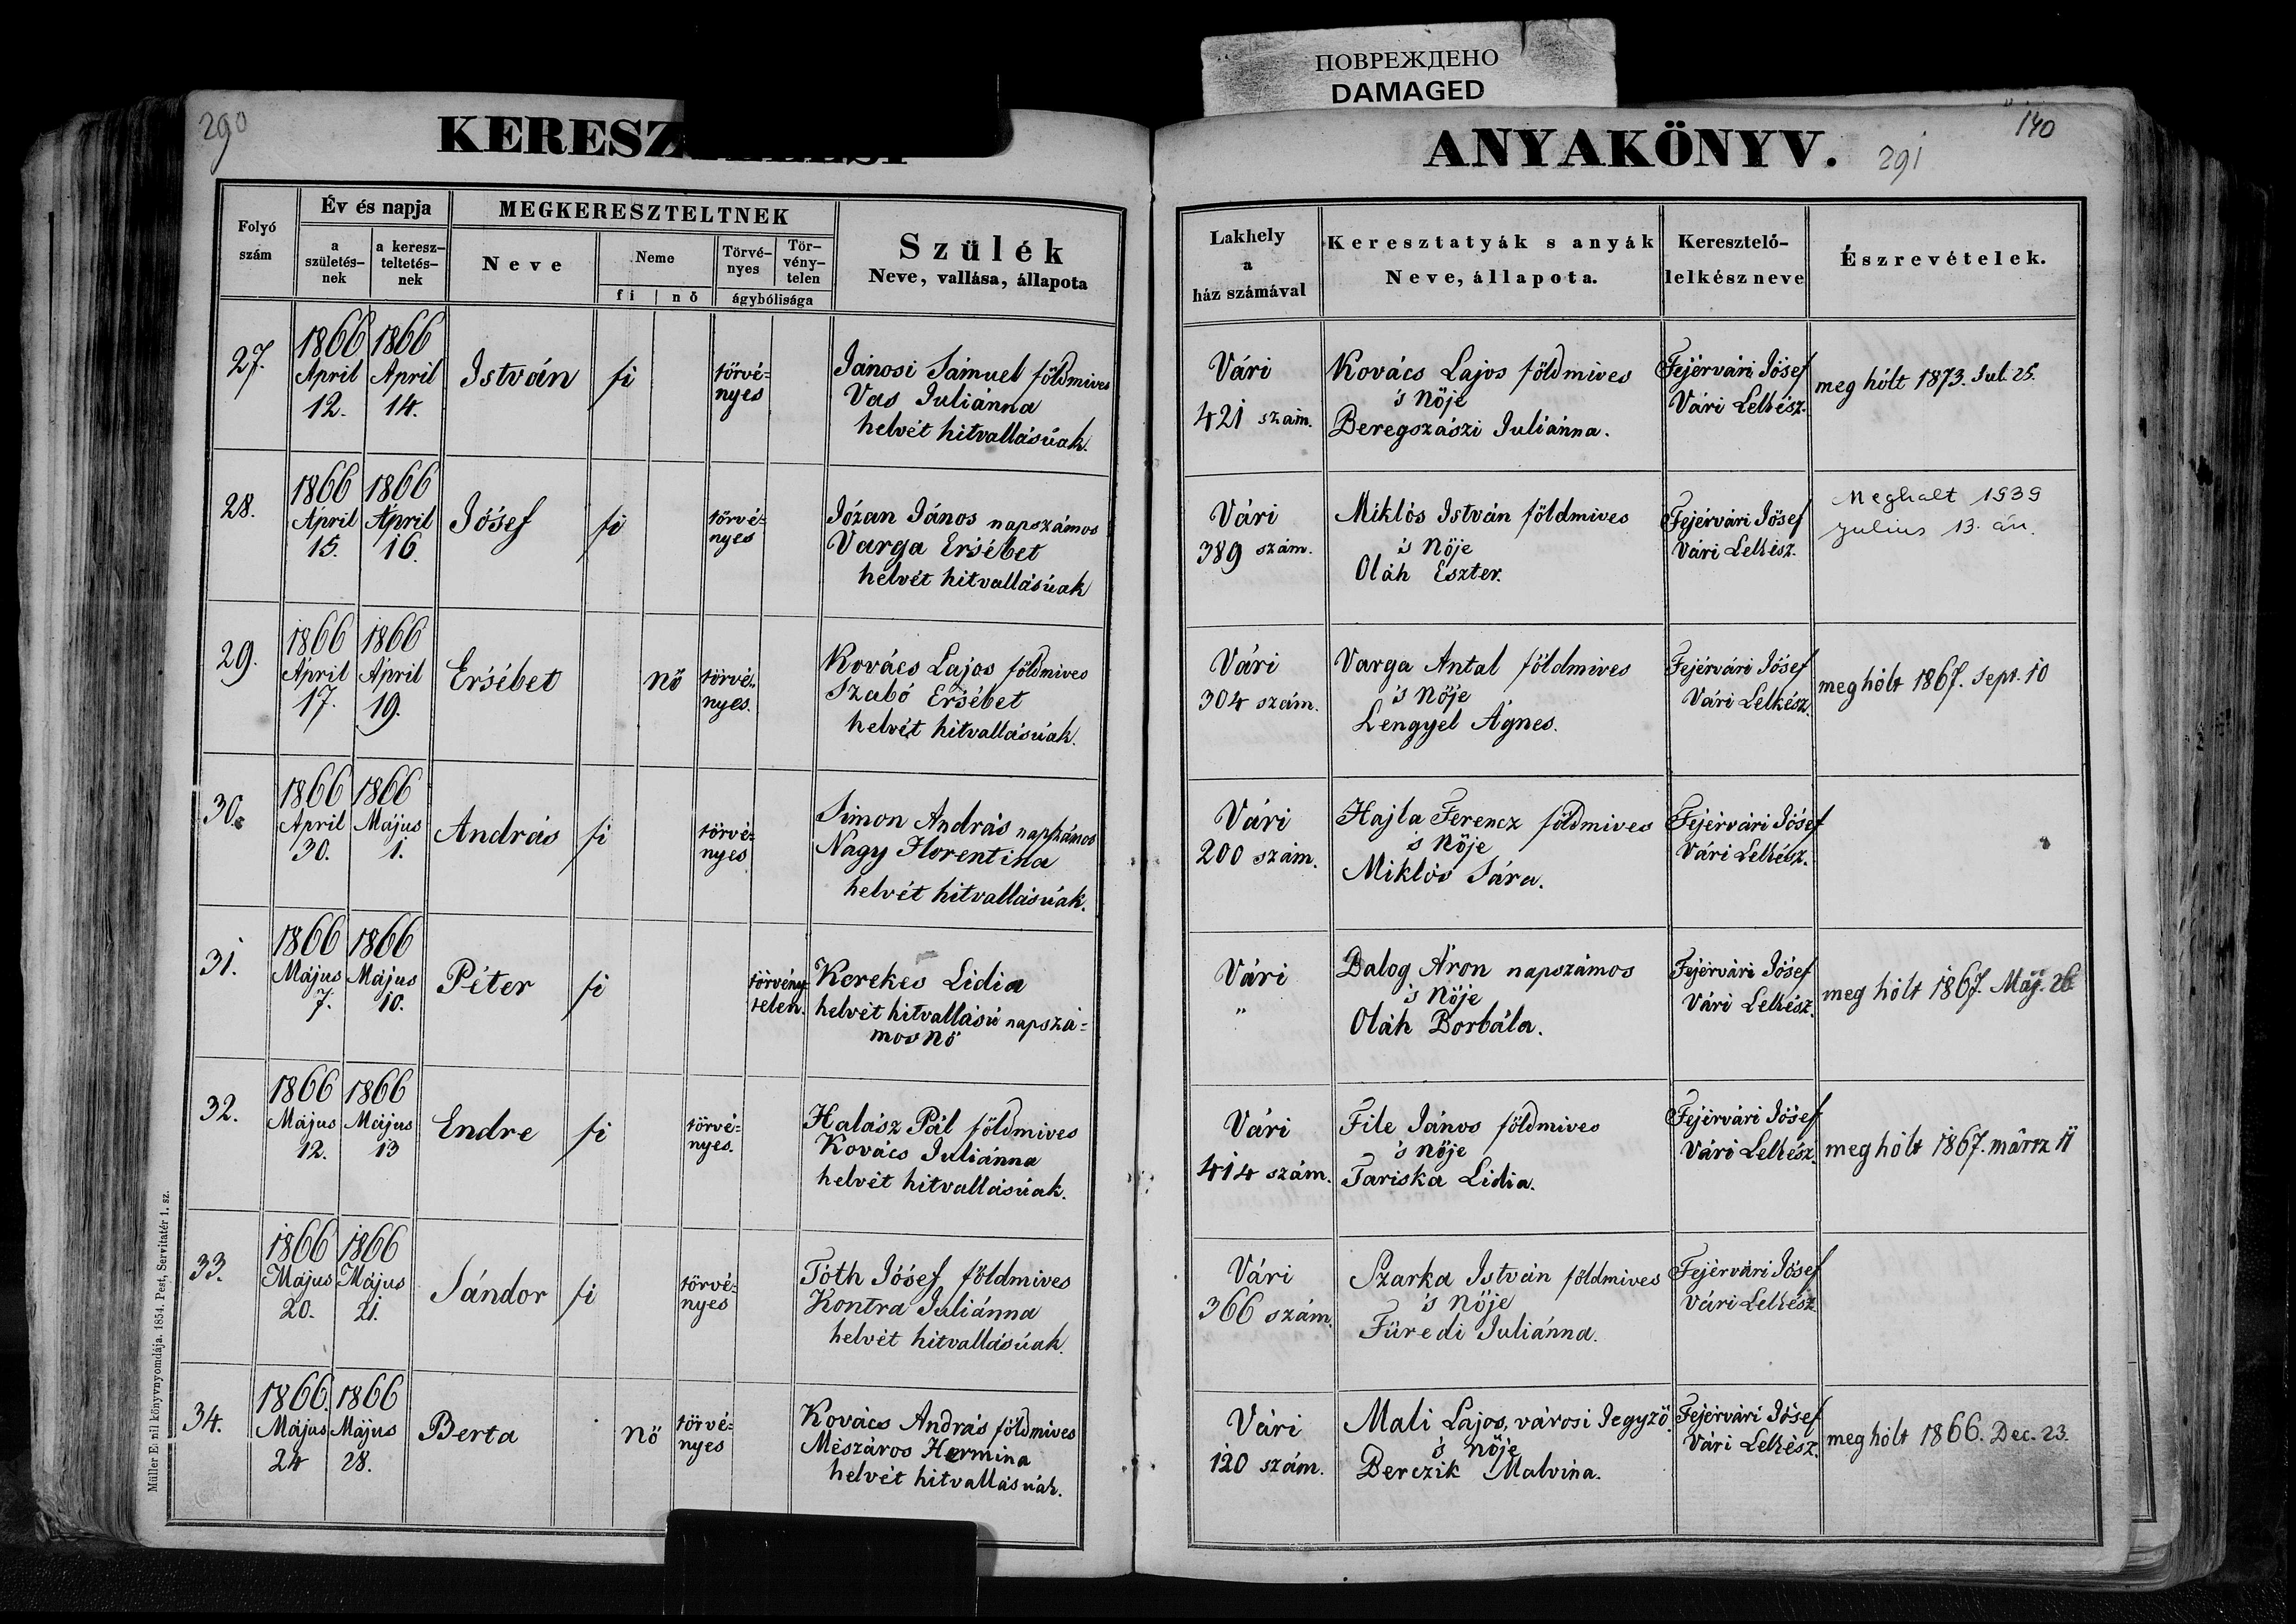 ПОВРЕЖДЕНО
DAMAGED
290
KERESZ
ANYAKÖNYV.
291
140
Folyó szám
Év és napja
a születés-nek
a keresz-teltetés-nek
MEGKERESZTELTNEK
Neve
Neme
fi | nő
Törvé-nyes
Tör-vény-telen
ágybólisága
Szülék
Neve, vallása, állapota
Lakhely a ház számával
Keresztatyák s anyák
Neve, állapota.
Keresztelő-lelkész neve
Észrevételek.
27.
1866 April 12.
1866 April 14.
István
fi
törvé-nyes
Jánosi Sámuel földmives
Vas Juliánna
helvét hitvallásúak.
Vári
421 szám.
Kovács Lajos földmives
's Nöje
Beregszászi Juliánna.
Fejérvári Jósef
Vári Lelkész.
meg hólt 1873. Jul. 25.
28.
1866 April 15.
1866 April 16.
Jósef
fi
törvé-nyes
Józan János napszámos
Varga Ersébet
helvét hitvallásúak
Vári
389 szám.
Miklós István földmives
's Nöje
Oláh Eszter.
Fejérvári Jósef
Vári Lelkész.
Meghalt 1939
julius 13. án.
29.
1866 April 17.
1866 April 19.
Ersébet
nő
törvé-nyes.
Kovács Lajos földmives
Szabó Ersébet
helvét hitvallásúak.
Vári
304 szám.
Varga Antal földmives
's Nöje
Lengyel Ágnes.
Fejérvári Jósef
Vári Lelkész.
meg hólt 1867. Sept. 10
30.
1866 April 30.
1866 Május 1.
András
fi
törvé-nyes
Simon András napszámos
Nagy Florentina
helvét hitvallásúak.
Vári
200 szám.
Hajla Ferencz földmives
's Nöje
Miklós Sára.
Fejérvári Jósef
Vári Lelkész.
31.
1866 Május 7.
1866 Május 10.
Péter
fi
törvény-telen.
Kerekes Lidia
helvét hitvallású napszá-
mos nö
Vári
"
Balog Áron napszámos
's Nöje
Oláh Borbála.
Fejérvári Jósef
Vári Lelkész.
meg hólt 1867. Máj. 26
32.
1866 Május 12.
1866 Május 13
Endre
fi
törvé-nyes.
Halász Pál földmives
Kovács Juliánna
helvét hitvallásúak.
Vári
414 szám.
File János földmives
's nöje
Tariska Lidia.
Fejérvári Jósef
Vári Lelkész.
meg hólt 1867. március 11
33.
1866 Május 20.
1866 Május 21.
Sándor
fi
törvé-nyes
Tóth Jósef földmives
Kontra Juliánna
helvét hitvallásúak.
Vári
366 szám.
Szarka István földmives
's Nöje
Füredi Juliánna.
Fejérvári Jósef
Vári Lelkész.
34.
1866. Május 24
1866 Május 28.
Berta
nö
törvé-nyes
Kovács András földmives
Mészáros Hermina
helvét hitvallásúak.
Vári
120 szám.
Mali Lajos, városi Jegyző.
's nöje
Berczik Malvina.
Fejérvári Jósef
Vári Lelkész.
meg hólt 1866. Dec. 23.
könyvnyomdája. 1854. Pest, Servitatér 1. sz.